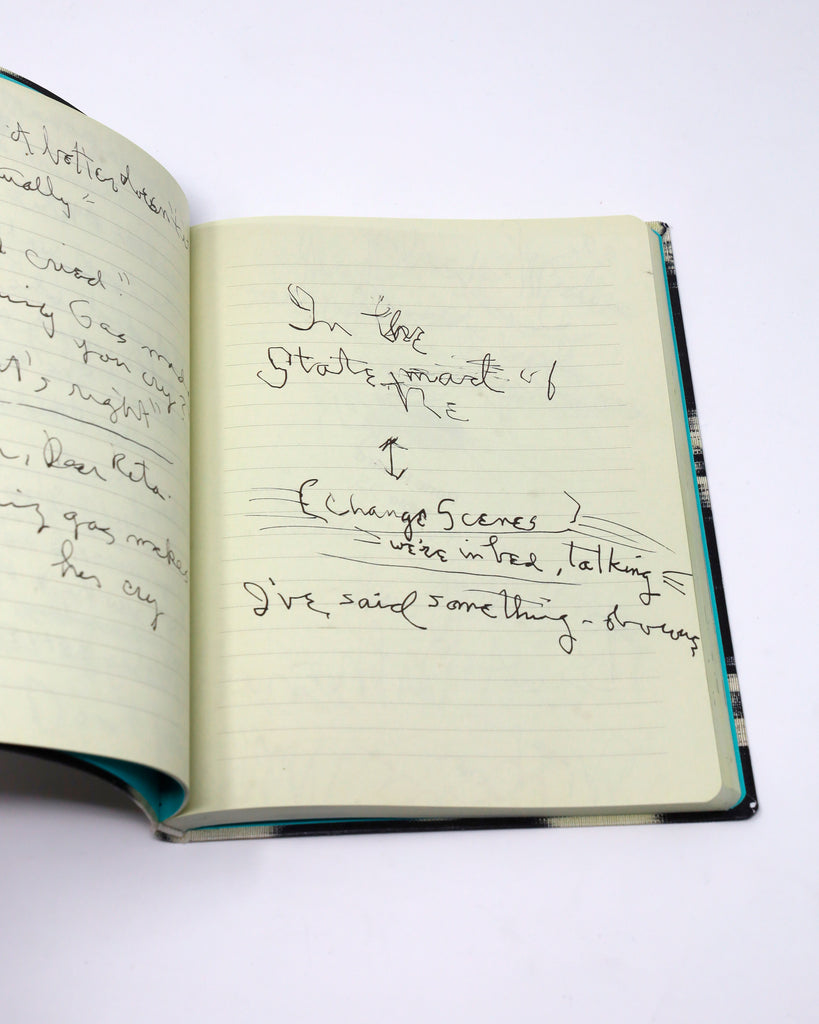 A better doesn't
ually"
cried"
Gas mad
you cry?
t's right"
Dear Reta.
gas makes
her cry
In the
State mart of
the
(Change Scenes)
we're in bed, talking
I've said something -